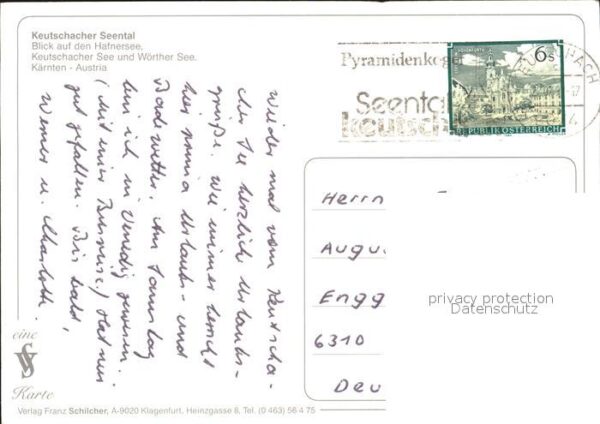 Keutschacher Seental
Blick auf den Hafnersee,
Keutschacher See und Wörther See.
Kärnten - Austria
Pyramidenkoge
Seenta
keutsch
6s
REPUBLIK ÖSTERREICH
Wieder mal vom Keutscha-
cher See herzliche Urlaubs-
grüße. Wie immer herrscht
hier prima Urlaubs- und
Badewetter. Am Samstag
bin ich in Venedig gewesen.
(mit einer Busreise) Hat mir
gut gefallen. Bis bald,
Werner u. Charlotte.
Herrn
Augu
Engg
6310
Deu
privacy protection
Datenschutz
eine
VS
Karte
Verlag Franz Schilcher, A-9020 Klagenfurt, Heinzgasse 8, Tel. (0 463) 56 4 75